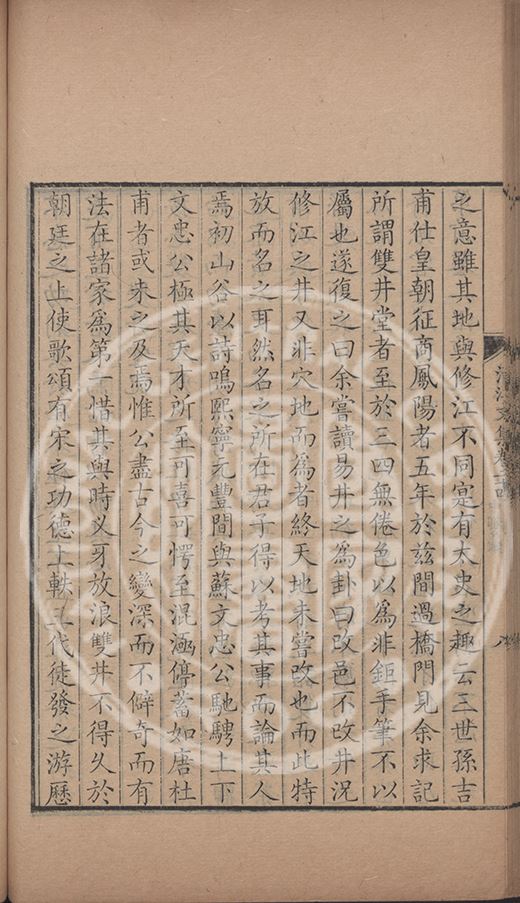 之意雖其地與修江不同寔有太史之趣云三世孫吉
甫仕皇朝征商鳳陽者五年於兹間過橋門見余求記
所謂雙井堂者至於三四無倦色以爲非鉅手筆不以
屬也遂復之曰余嘗讀易井之爲卦曰改邑不改井況
修江之井又非穴地而爲者終天地未嘗改也而此特
放而名之耳然名之所在君子得以考其事而論其人
焉初山谷以詩鳴熙寧元豐間與蘇文忠公馳騁上下
文忠公極其天才所至可喜可愕至混涵停蓄如唐杜
甫者或未之及焉惟公盡古今之變深而不僻奇而有
法在諸家爲第一惜其與時乂牙放浪雙井不得乆於
朝廷之上使歌頌有宋之功德上軼三代徒發之游歷
清江文集卷